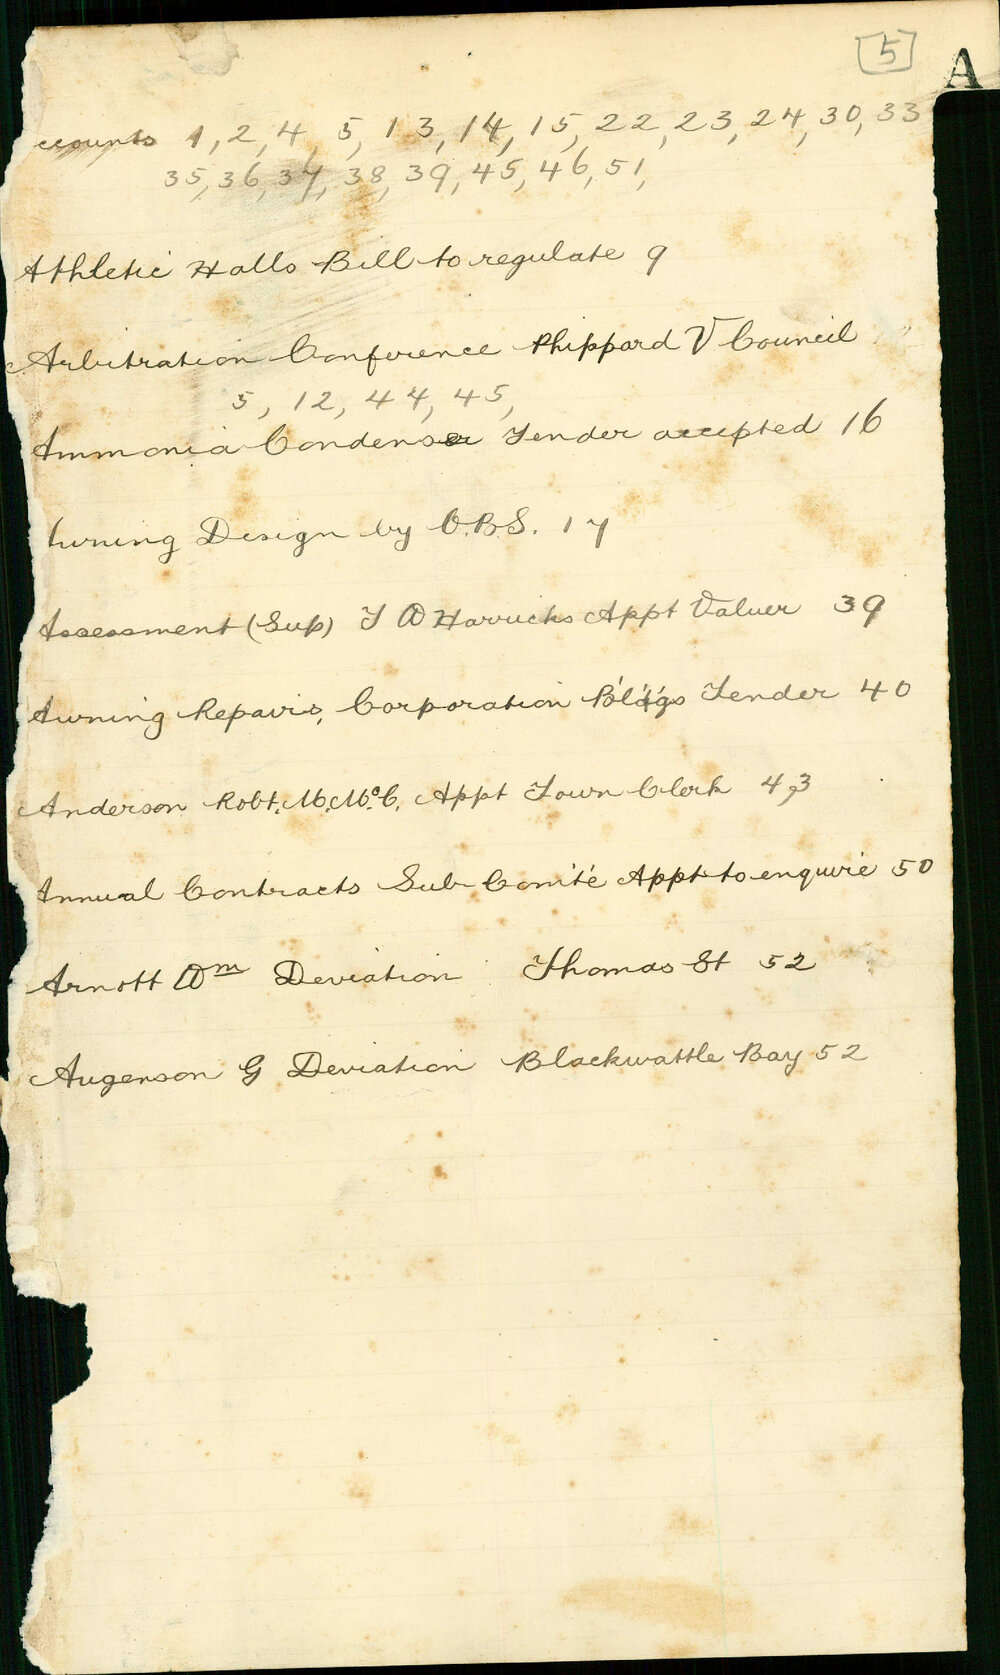 [5]
A
ccounts 1, 2, 4, 5, 13, 14, 15, 22, 23, 24, 30, 33
35, 36, 37, 38, 39, 45, 46, 51,
Athletic Halls Bill to regulate 9
Arbitration Conference Phippard V Council
5, 12, 44, 45,
Ammonia Condenser Tender accepted 16
wning Design by C.B.S. 17
Assessment (Sup) J W Harricks Appt Valuer 39
Awning Repairs, Corporation Bldgs Tender 40
Anderson Robt. Mc.Mc.C. Appt Town Clerk 43
Annual Contracts Sub Comte Appt to enquire 50
Arnott Wm Deviation Thomas St 52
Augerson G Deviation Blackwattle Bay 52